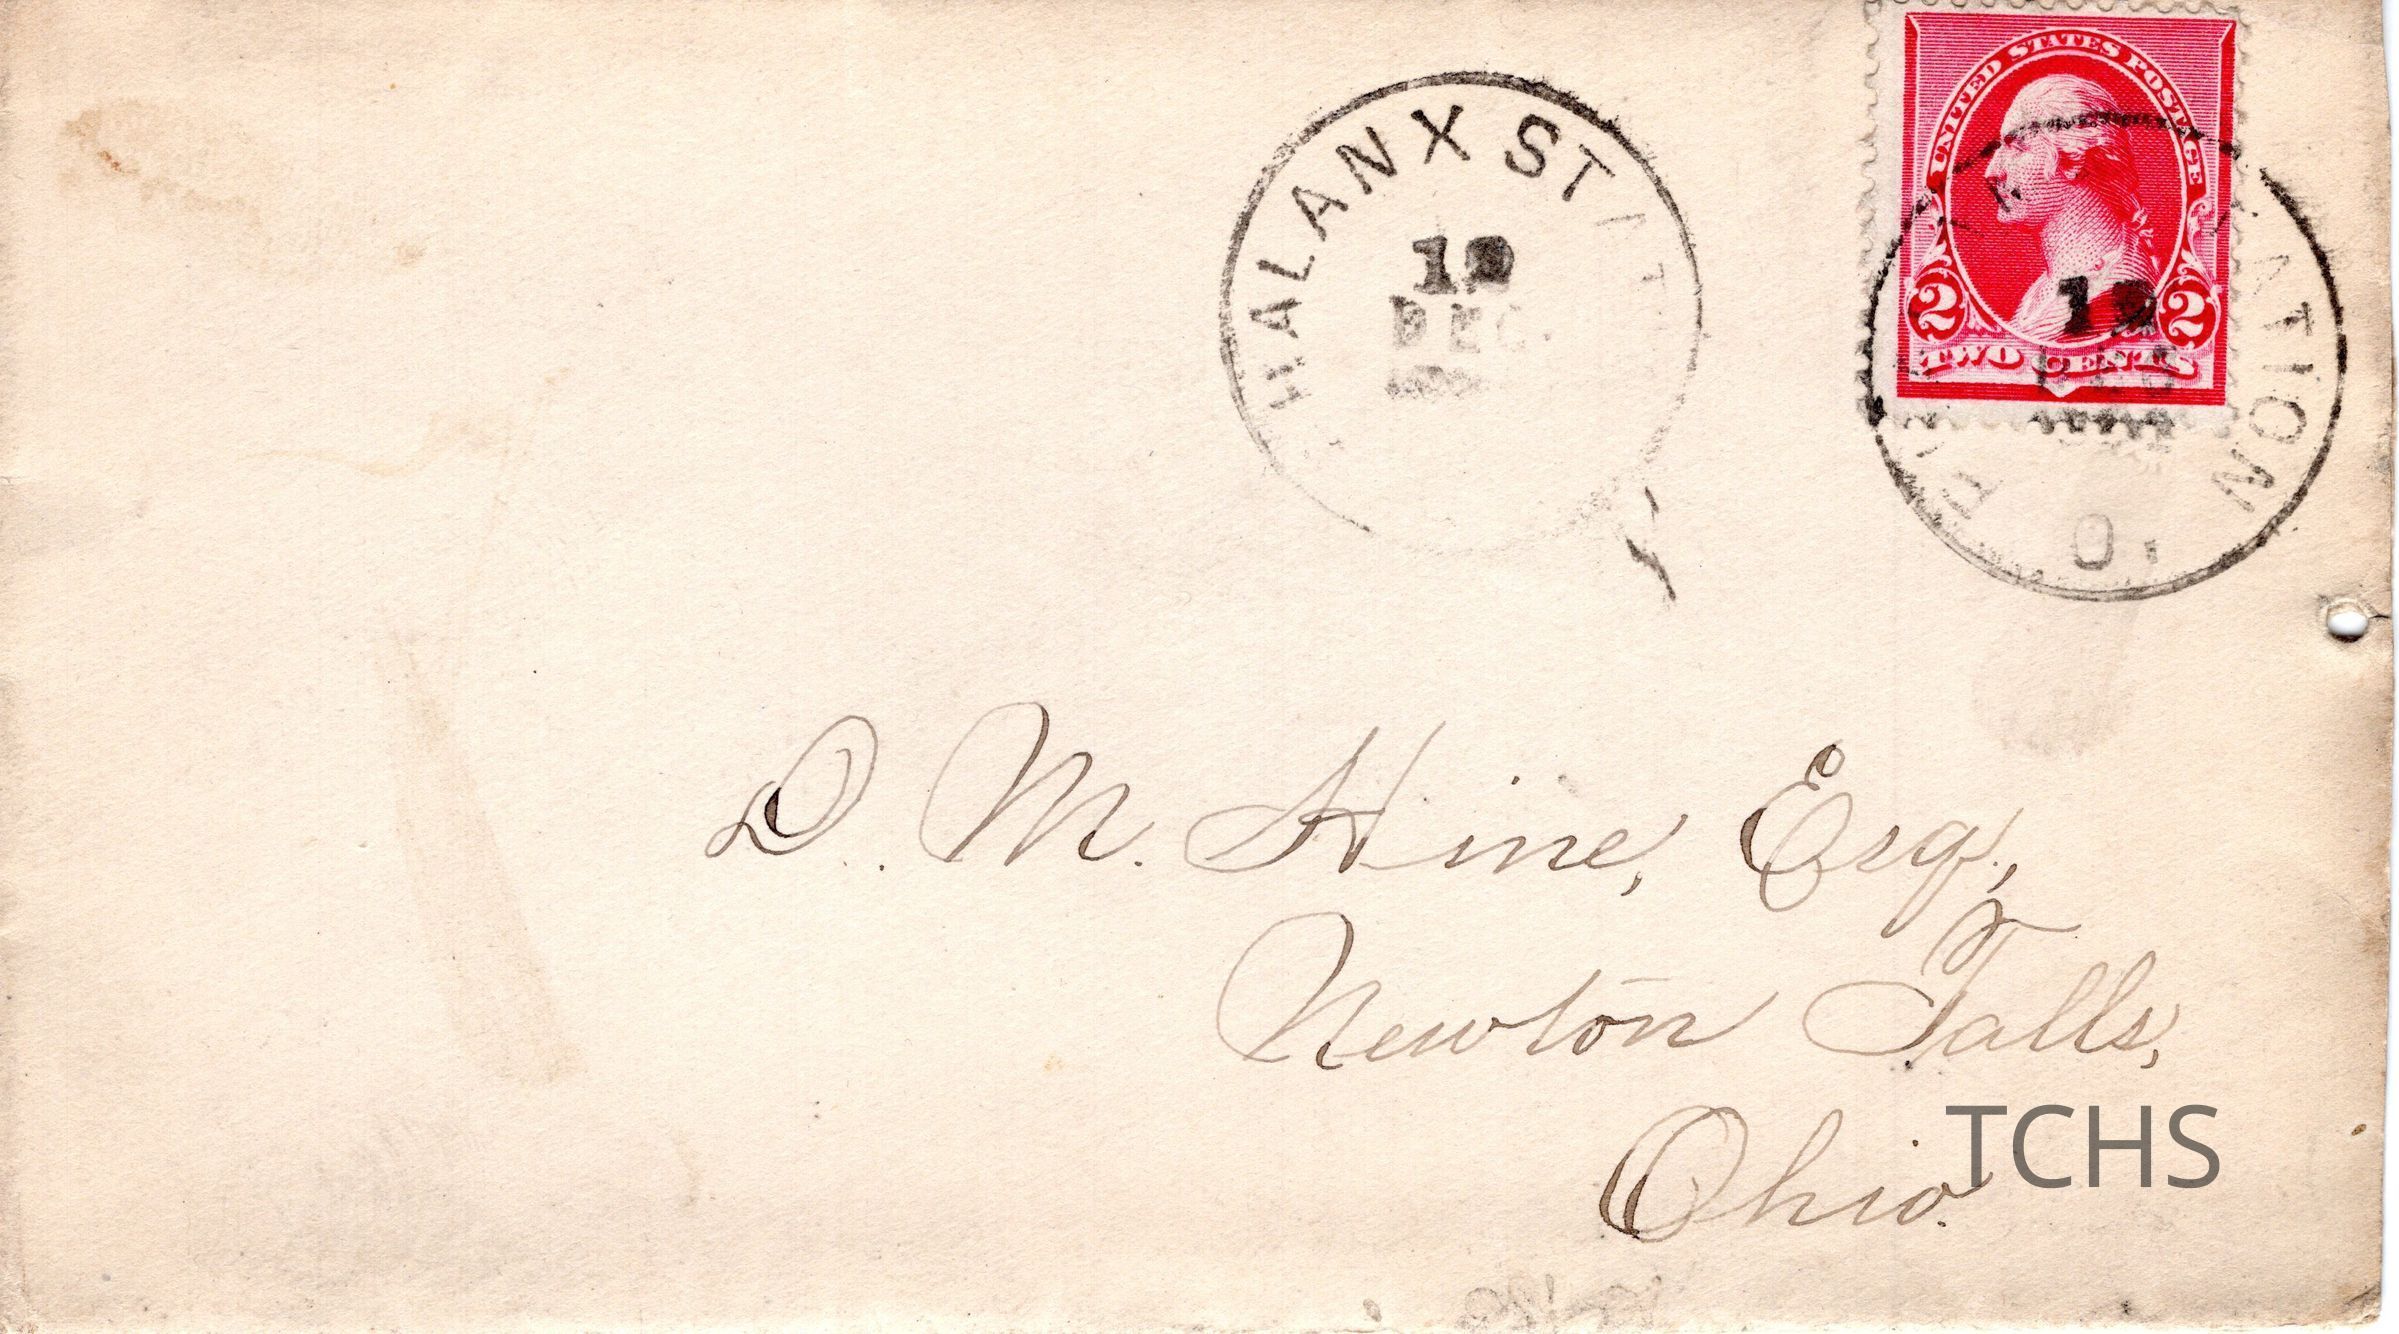 UNITED STATES POSTAGE
2 2
TWO CENTS
HALANX STAT
12
DEC
ATION
O.
12
D. M. Hine, Esq,
Newton Falls,
Ohio.
TCHS